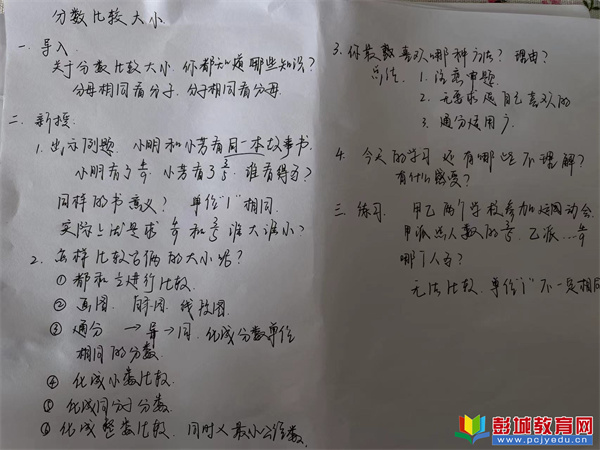 分数比较大小
一、导入
关于分数比较大小,你都知道哪些知识?
分母相同看分子,分子相同看分母.
二、新授.
1. 出示例题. 小明和小芳看同一本故事书.
小明看了 小芳看了3/5. 谁看得多?
同样的书意义? 单位"1"相同.
实际上就是求 和3/5谁大谁小?
2. 怎样比较它俩的大小呢?
① 都和 进行比较.
② 画图. 线段图
③ 通分 → 异→同. 化成分数单位
相同的分数.
④ 化成小数比较.
⑤ 化成同分子分数.
⑥ 化成整数比较. 同时×最小公倍数.
3. 你最喜欢哪种方法? 理由?
总结 1. 注意审题
2. 无要求选自己喜欢的
3. 通分
4. 今天的学习还有哪些不理解?
有什么感受?
三、练习. 甲乙两个学校参加运动会.
甲派出人数的3/5, 乙派…
哪个人多?
无法比较, 单位"1"不一定相同
彭城教育网
www.pcjyedu.cn